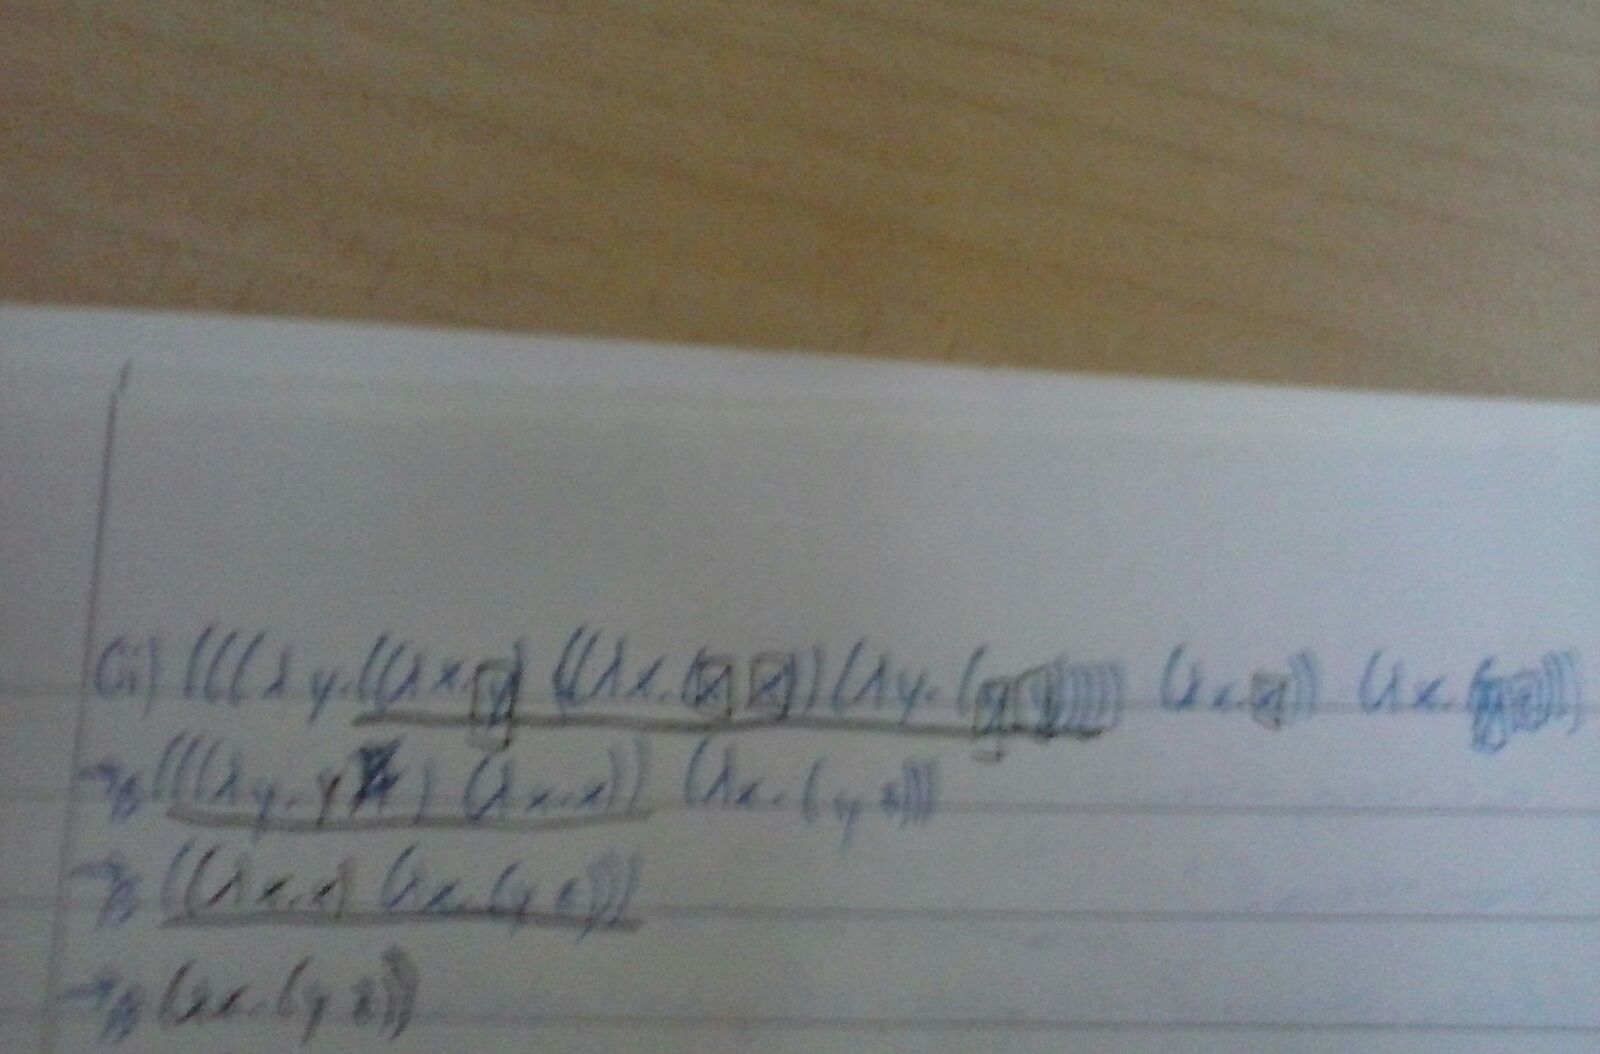 (ii) (((λy.((λx.y) ((λx.(x x))(λy.(y y))))) (λx.x)) (λx.(y z)))
→β (((λy.y) (λx.x)) (λx.(y z)))
→β ((λx.x) (λx.(y z)))
→β (λx.(y z))